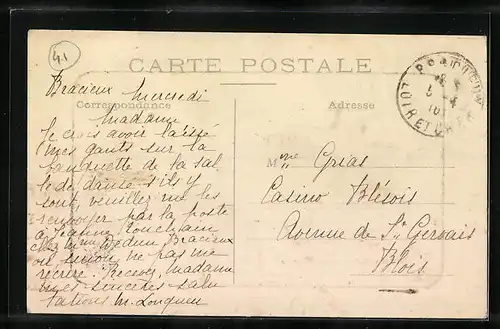 41
CARTE POSTALE
Correspondance
Adresse
Bracieux Mercredi
Madame
Je crois avoir laissé
mes gants sur la
banquette de la sal
le de danse s'ils y
sont veuillez me les
renvoyer par la poste
à Jeanne
chez Mme Bracieux
ou sinon ne pas me
récrire. Recevez, Madame
mes sincères salu
tations M.
Mme Grias
Casino Blésois
Avenue de St Gervais
Blois
LOIR ET CHER